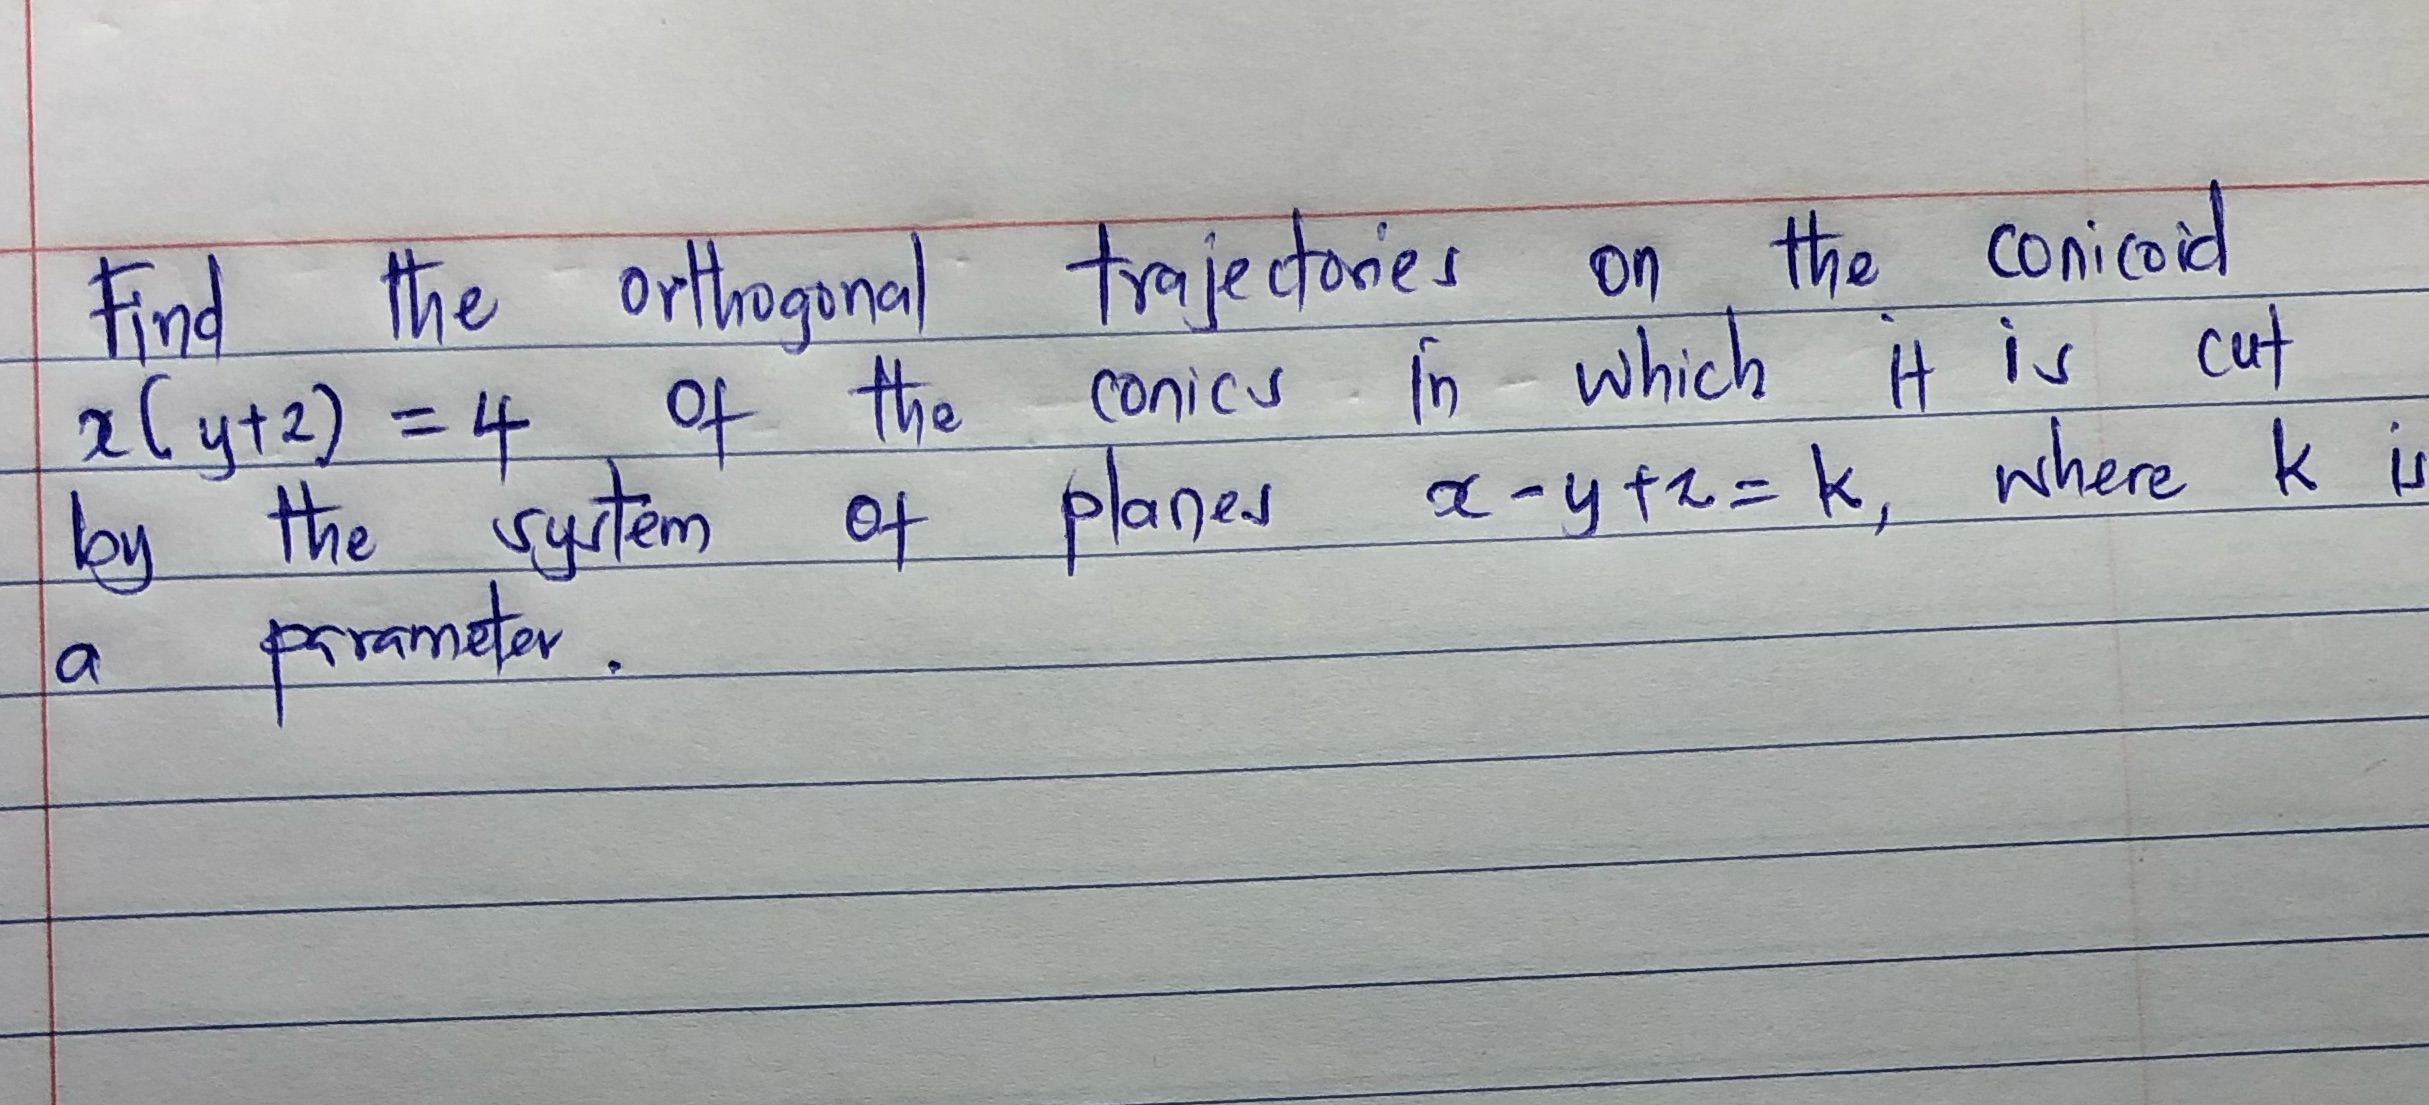 Find the orthogonal trajectories on the conicoid
x(y+z) = 4 of the conics in which it is cut
by the system of planes x-y+z=k, where k is
a parameter.